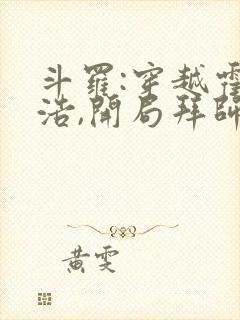 斗羅:穿越霍
浩,開局拜師
黃雯